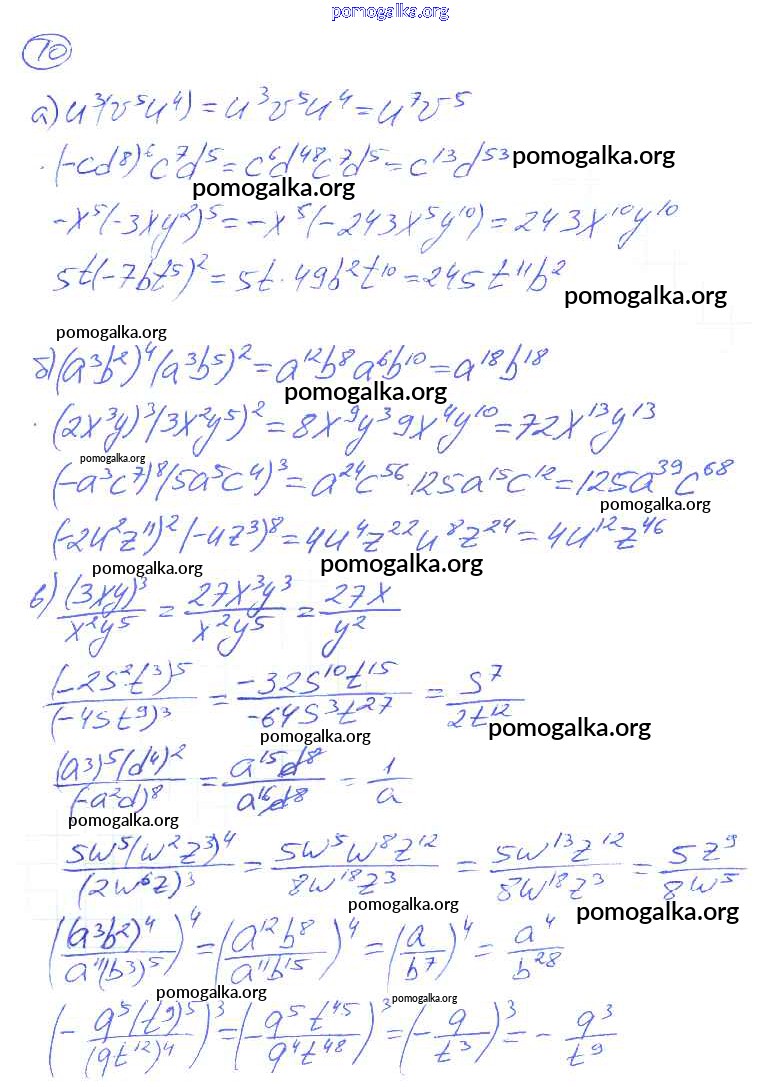 pomogalka.org
10
а) u³(v⁵u⁴) = u³v⁵u⁴ = u⁷v⁵
(-cd⁸)⁶c⁷d⁵ = c⁶d⁴⁸c⁷d⁵ = c¹³d⁵³ pomogalka.org
pomogalka.org
-x⁵(-3xy²)⁵ = -x⁵(-243x⁵y¹⁰) = 243x¹⁰y¹⁰
5t(-7bt⁵)² = 5t·49b²t¹⁰ = 245t¹¹b²
pomogalka.org
pomogalka.org
б) (a³b²)⁴(a³b⁵)² = a¹²b⁸a⁶b¹⁰ = a¹⁸b¹⁸
pomogalka.org
(2x³y)³(3x²y⁵)² = 8x⁹y³9x⁴y¹⁰ = 72x¹³y¹³
pomogalka.org
(-a³c⁷)⁸(5a⁵c⁴)³ = a²⁴c⁵⁶·125a¹⁵c¹² = 125a³⁹c⁶⁸
pomogalka.org
(-2u²z¹¹)²(-uz³)⁸ = 4u⁴z²²u⁸z²⁴ = 4u¹²z⁴⁶
pomogalka.org pomogalka.org
в) (3xy)³/x²y⁵ = 27x³y³/x²y⁵ = 27x/y²
(-2s²t³)⁵/(-4st⁹)³ = -32s¹⁰t¹⁵/-64s³t²⁷ = s⁷/2t¹²
pomogalka.org pomogalka.org
(a³)⁵(d⁴)²/(-a²d)⁸ = a¹⁵d⁸/a¹⁶d⁸ = 1/a
pomogalka.org
5w⁵(w²z³)⁴/(2w⁶z)³ = 5w⁵w⁸z¹²/8w¹⁸z³ = 5w¹³z¹²/8w¹⁸z³ = 5z⁹/8w⁵
pomogalka.org pomogalka.org
((a³b²)⁴/a¹¹(b³)⁵)⁴ = (a¹²b⁸/a¹¹b¹⁵)⁴ = (a/b⁷)⁴ = a⁴/b²⁸
pomogalka.org pomogalka.org
(-q⁵(t⁹)⁵/(qt¹²)⁴)³ = (-q⁵t⁴⁵/q⁴t⁴⁸)³ = (-q/t³)³ = -q³/t⁹